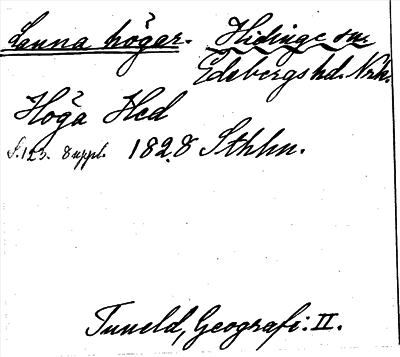 Lanna högar. Hidinge sn.
Edsbergs hd. Nrk.
Höga Hed
S. 123. 8 uppl. 1828 Sthlm.
Tuneld, Geografi: II.